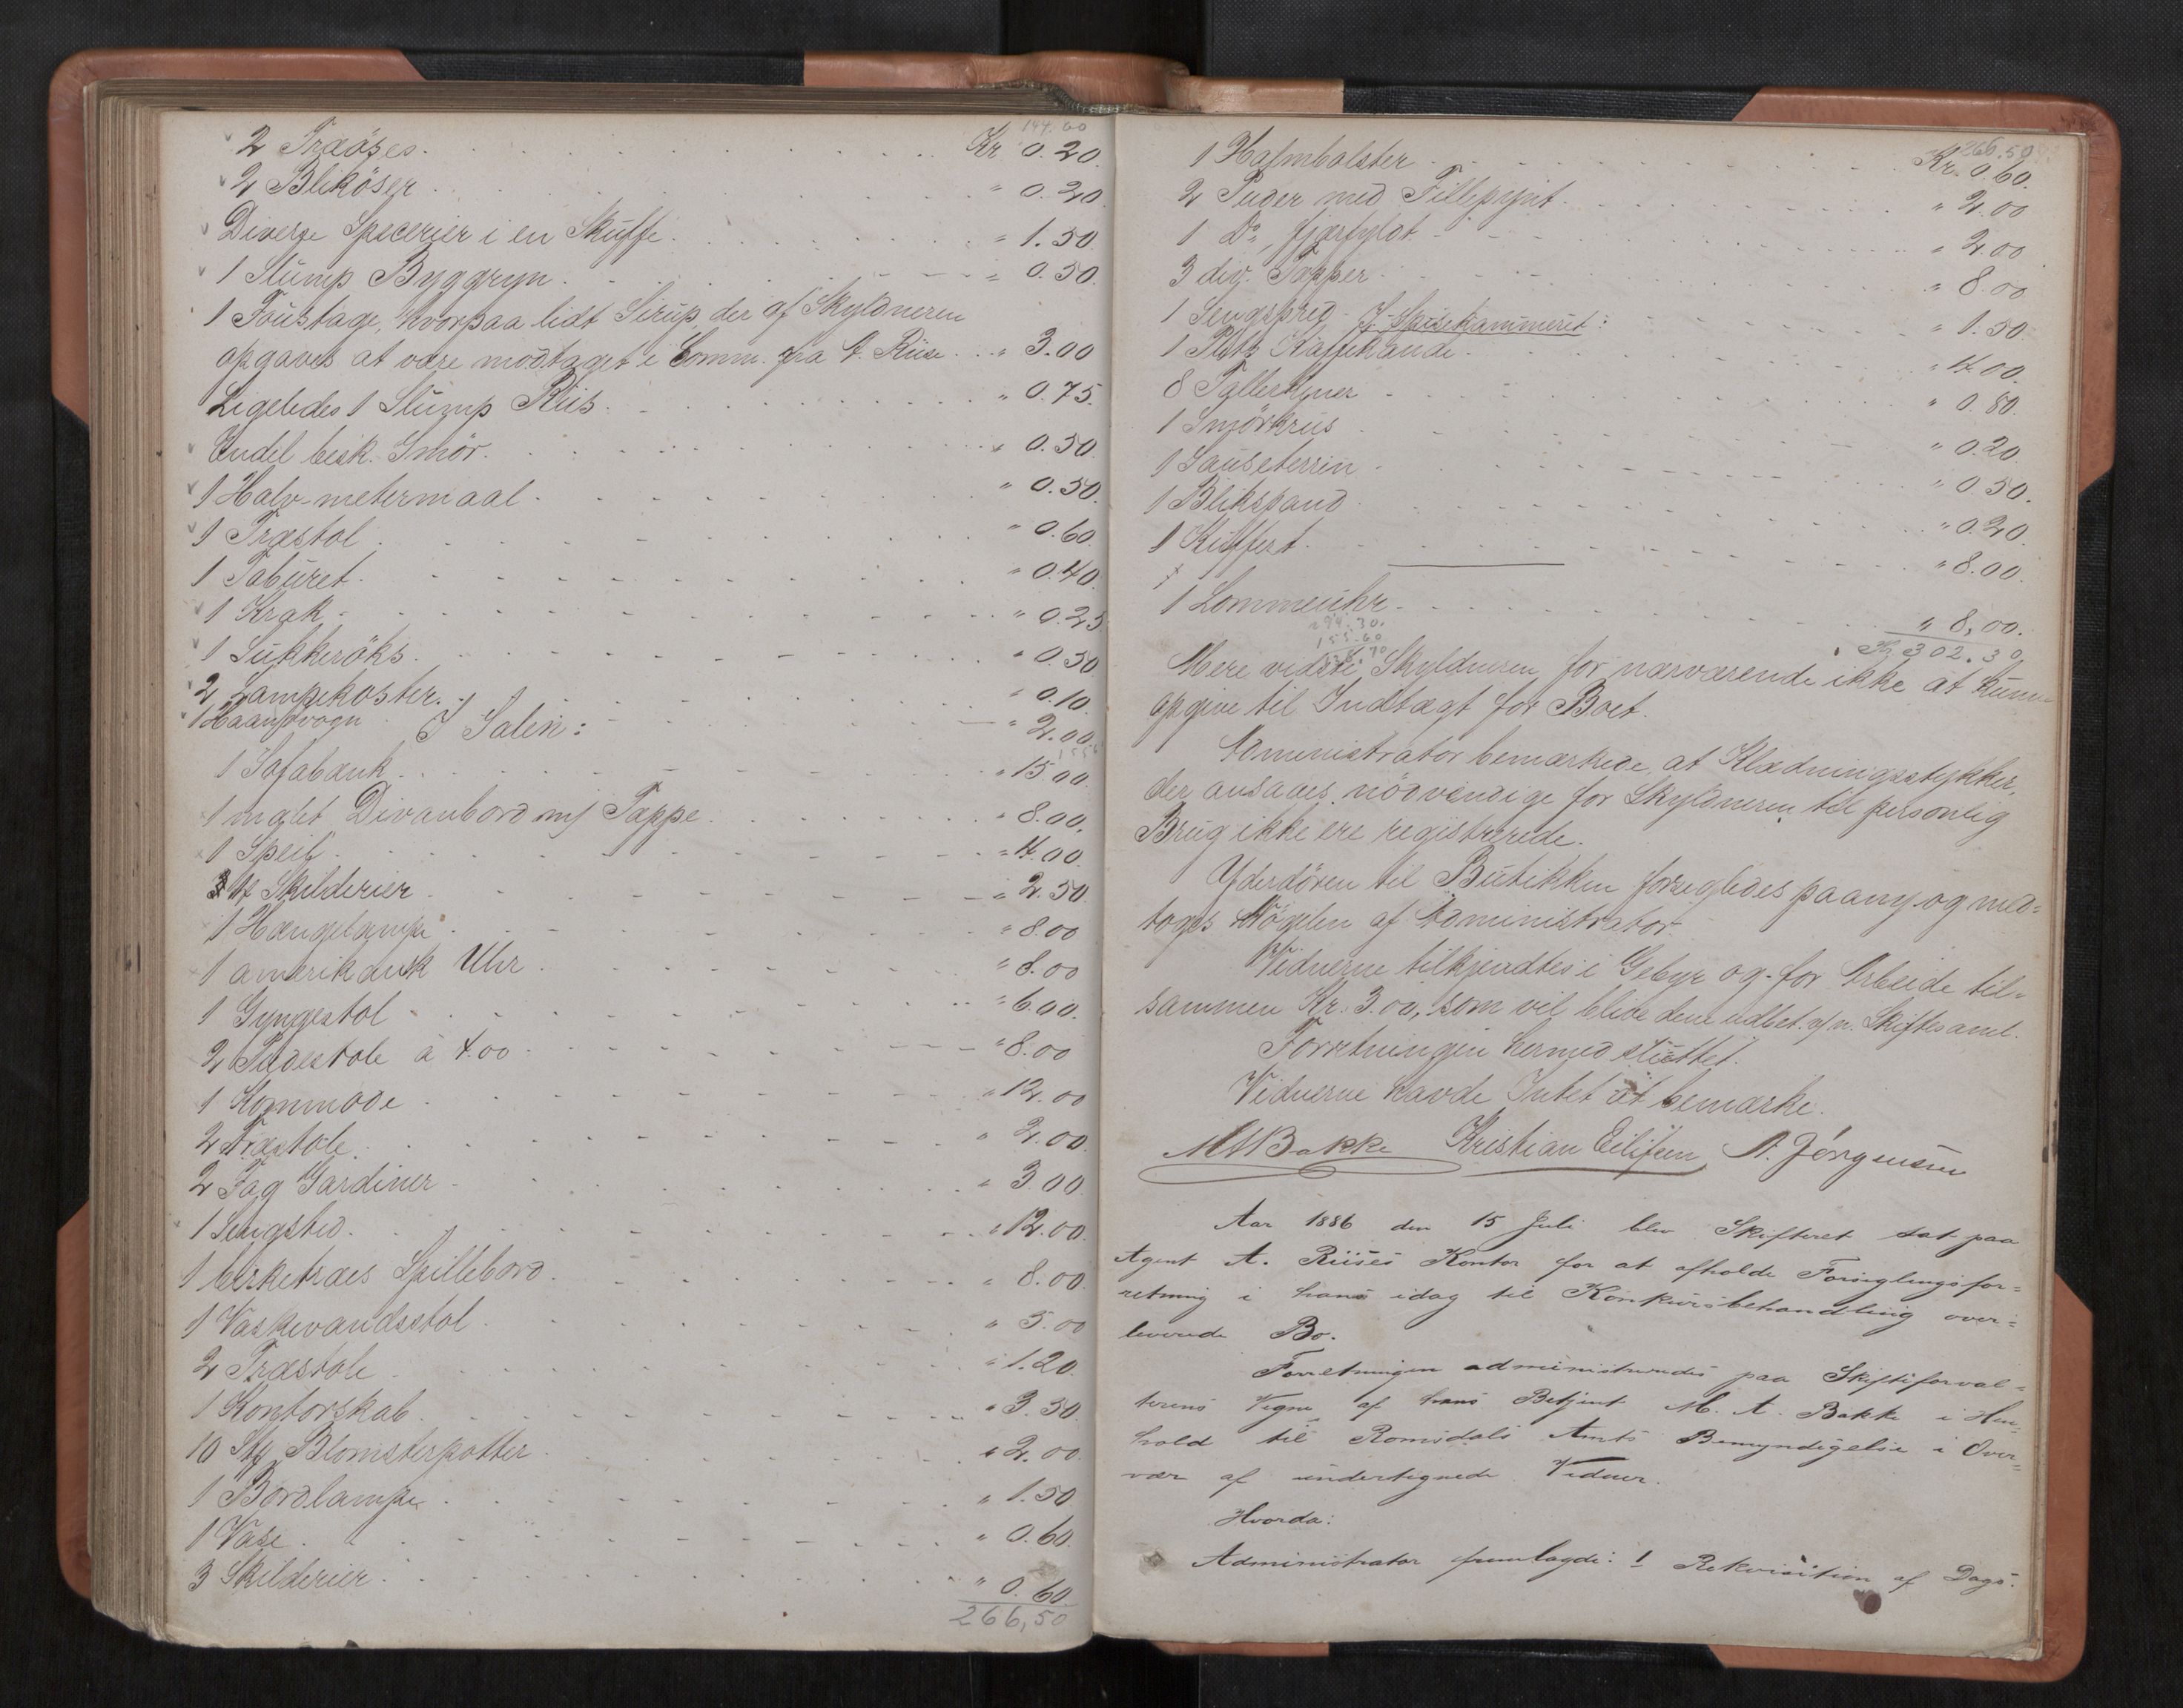 144.60
2 Træöses. Kr 0.20.
2 Bliköser " 0.20.
Diverse Specerier i en Skuffe. " 1.50.
1 Slump Byggryn. " 0.50.
1 Foustage, hvorpaa lidt Sirup, der af Skyldneren
opgaves at være modtaget i Comm. fra A. Riise. " 3.00
Ligeledes 1 Slump Riis. " 0.75.
Endel besk. Smör. " 0.50.
1 Halv-metermaal. " 0.50.
1 Træstol. " 0.60.
1 Taburet. " 0.40.
1 Krak. " 0.25
1 Sukkeröks. " 0.50
2 Lampekoster. " 0.10.
1 Haandvogn " 2.00.
I Salen:
1 Sofabænk. " 15.00
1 malet Divanbord m/ Tæppe. " 8.00.
1 Speil. " 4.00.
4 Skilderier " 2.50
1 Hængelampe " 8.00
1 amerikansk Uhr. " 8.00
1 Gyngestol " 6.00.
2 Pudestole à 4.00. " 8.00
1 Kommode " 12.00
2 Træstole. " 2.00.
2 Fag Gardiner. " 3.00
1 Sengsted. " 12.00.
1 birketræes Spillebord. " 8.00.
1 Vaskevandsstol. " 5.00
2 Træstole. " 1.20.
1 Kontorskab. " 3.50.
10 Stk Blomsterpotter. " 2.00.
1 Bordlampe. " 1.50
1 Vase. " 0.60.
3 Skilderier. " 0.60
266,50
266.50
1 Halmbolster Kr. 0.60.
2 Puder med Fillepynt. " 2.00
1 Do, fjærfyldt. " 2.00
3 div. Tæpper. " 8.00
1 Sengspred. " 1.50.
I Spisekammeret:
1 Kaffekande. " 4.00.
8 Tallerkener " 0.80.
1 Smörkrus " 0.20
1 Sauseterrin " 0.50.
1 Blikspand " 0.20
1 Kuffert. " 8.00.
1 Lommeuhr. " 8,00.
Kr 302.30
294.30.
155.60
138.70
Mere vidste Skyldneren for nærværende ikke at kunne
opgive til Indtægt for Boet.
Administrator bemærkede, at Klædningsstykker,
der ansaaes nödvendige for Skyldneren til personlig
Brug ikke ere registrerede.
Yderdören til Butikken forsegledes paany og med-
toges Nögelen af Administrator.
Vidnerne tilkjendtes i Gebyr og for Arbeide til-
sammen Kr. 3.00, som vil blive dem udbet. af n. Skiftesaml.
Forretningen hermed sluttet.
Vidnerne havde Intet at bemærke.
M A Bakke Kristian Eilifsen A. Jørgensen
Aar 1886 den 15 Juli blev Skifteret sat paa
Agent A. Riises Kontor for at afholde Forseglingsfor-
retning i hans idag til Konkursbehandling over-
leverede Bo.
Forretningen administreredes paa Skifteforval-
terens Vegne af hans Betjent M. A. Bakke i Hen-
hold til Romsdals Amts Bemyndigelse i Over-
vær af undertegnede Vidner.
Hvorda:
Administrator fremlagde: 1 Rekvisition af Dags.